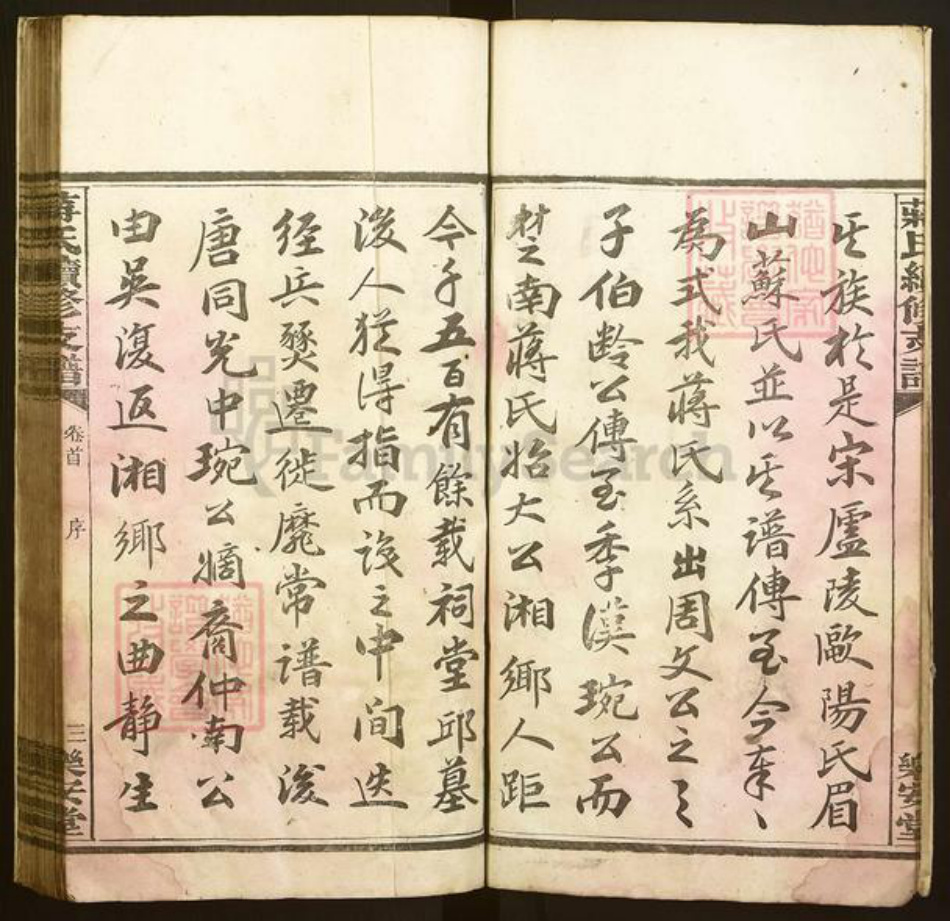 蔣氏續修支譜 樂安堂
其族於是宋廬陵歐陽氏眉
山蘇氏並以其譜傳至今奉
為式我蔣氏系出周文公之三
子伯齡公傳至季漢琬公而
楚南蔣氏始大公湘鄉人距
今千五百有餘載祠堂邱墓
後人猶得指而識之中間迭
經兵燹遷徙靡常譜載後
唐同光中琬公嫡裔仲南公
由吳復返湘鄉之曲靜生
蔣氏續修支譜 卷首 序 三 樂安堂
FamilySearch